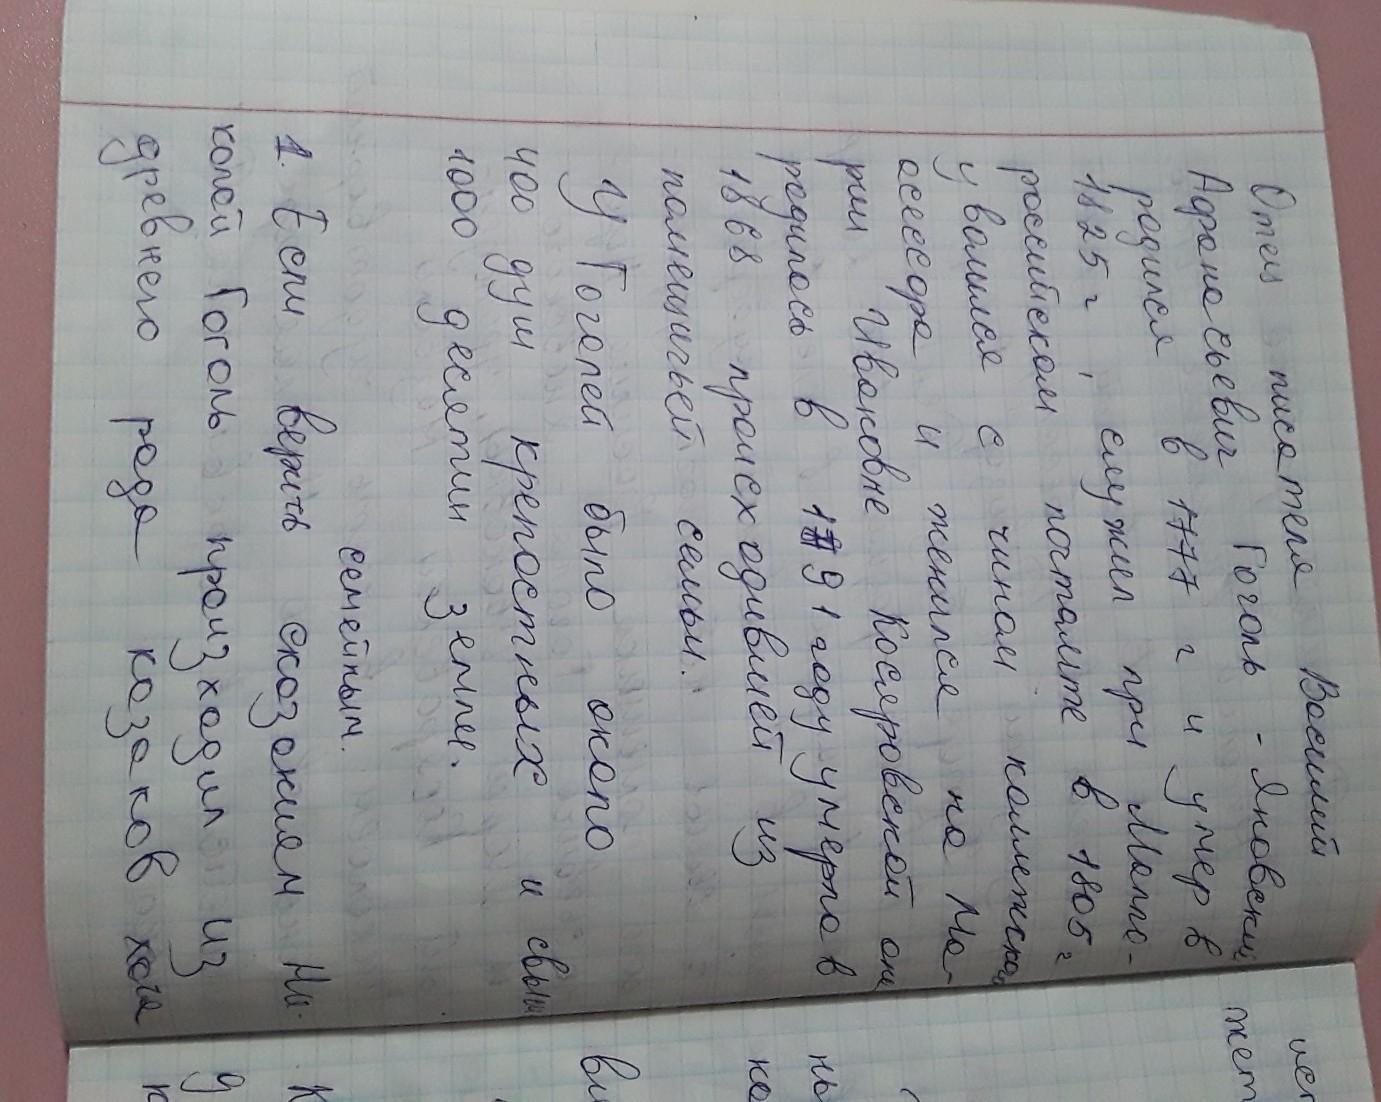 Отец писателя Василий
Афонасьевич Гоголь - Яновский
родился в 1777 г и умер в
1825 г, служил при Мало-
российском почтамте в 1805 г
уволился с чином коллежского
осессора и женился на Ма-
рии Ивановне Косяровской она
родилось в 1791 году умерла в
1868 происходившей из
помещичьей семьи.
У Гоголей было около
400 душ крепостных и свыше
1000 десятин земли.
семейным.
1. Если верить сказаниям Ни-
колай Гоголь произходил из
древнего рода казаков хотя